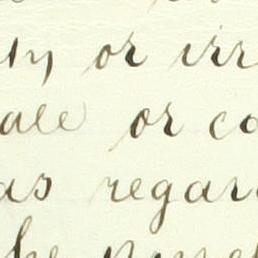 ly or irr
ale or co
as regar
he